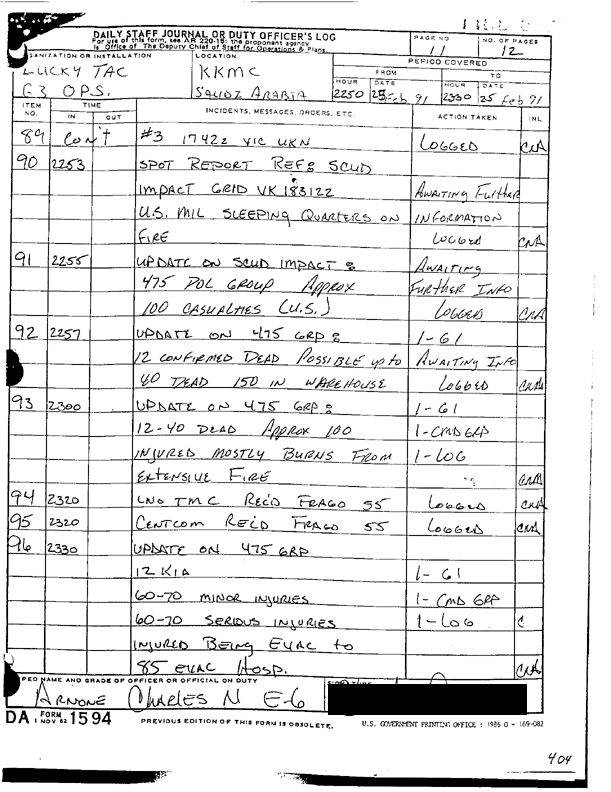 DAILY STAFF JOURNAL OR DUTY OFFICER'S LOG
For use of this form, see AR 220-15: the proponent agency
is Office of The Deputy Chief of Staff for Operations & Plans.
PAGE NO
11
NO. OF PAGES
12
ORGANIZATION OR INSTALLATION
LUCKY TAC
G3 OPS.
LOCATION
KKMC
SAUDI ARABIA
PERIOD COVERED
FROM TO
HOUR DATE HOUR DATE
2250 25 Feb 91 2330 25 Feb 91
ITEM NO. TIME IN OUT INCIDENTS, MESSAGES, ORDERS, ETC. ACTION TAKEN INL
89 Con't #3 1742z VIC UKN LOGGED CNA
90 2253 SPOT REPORT REF: SCUD
IMPACT GRID VK 183122 AWAITING FURTHER
U.S. MIL SLEEPING QUARTERS ON INFORMATION
FIRE LOGGED CNA
91 2255 UPDATE ON SCUD IMPACT: AWAITING
475 POL GROUP APPROX FURTHER INFO
100 CASUALTIES (U.S.) LOGGED CNA
92 2257 UPDATE ON 475 GRP: 1-G1
12 CONFIRMED DEAD POSSIBLE up to AWAITING INFO
40 DEAD 150 IN WAREHOUSE LOGGED CNA
93 2300 UPDATE ON 475 GRP: 1-G1
12-40 DEAD APPROX 100 1-CMD GRP
INJURED MOSTLY BURNS FROM 1-LOG
EXTENSIVE FIRE CNA
94 2320 LNO TMC REC'D FRAGO 55 LOGGED CNA
95 2320 CENTCOM REC'D FRAGO 55 LOGGED CNA
96 2330 UPDATE ON 475 GRP
12 KIA 1-G1
60-70 MINOR INJURIES 1-CMD GRP
60-70 SERIOUS INJURIES 1-LOG C
INJURED BEING EVAC to
85 EVAC HOSP. CNA
TYPED NAME AND GRADE OF OFFICER OR OFFICIAL ON DUTY
ARNONE CHARLES N E-6
DA FORM 1594
1 NOV 62
PREVIOUS EDITION OF THIS FORM IS OBSOLETE.
U.S. GOVERNMENT PRINTING OFFICE : 1986 O - 169-082
404